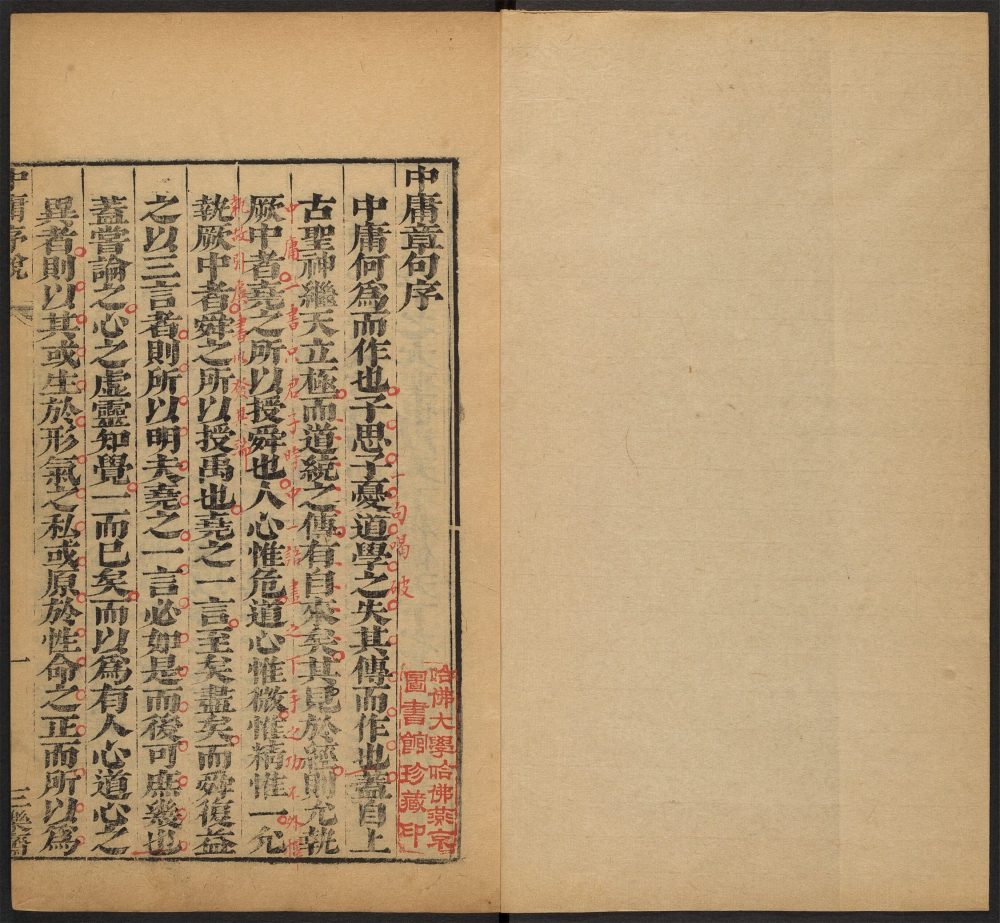 中庸章句序
哈佛大學哈佛燕京
圖書館珍藏印
一句喝破
中庸何爲而作也子思子憂道學之失其傳而作也蓋自上
古聖神繼天立極而道統之傳有自來矣其見於經則允執
中庸一書只君子時中一語盡之下手之功不外惟
厥中者堯之所以授舜也人心惟危道心惟微惟精惟一允
執故引虞書以發其端
執厥中者舜之所以授禹也堯之一言至矣盡矣而舜復益
之以三言者則所以明夫堯之一言必如是而後可庶幾也
蓋嘗論之心之虛靈知覺一而已矣而以爲有人心道心之
異者則以其或生於形氣之私或原於性命之正而所以爲
中庸序說 一 三樂齋